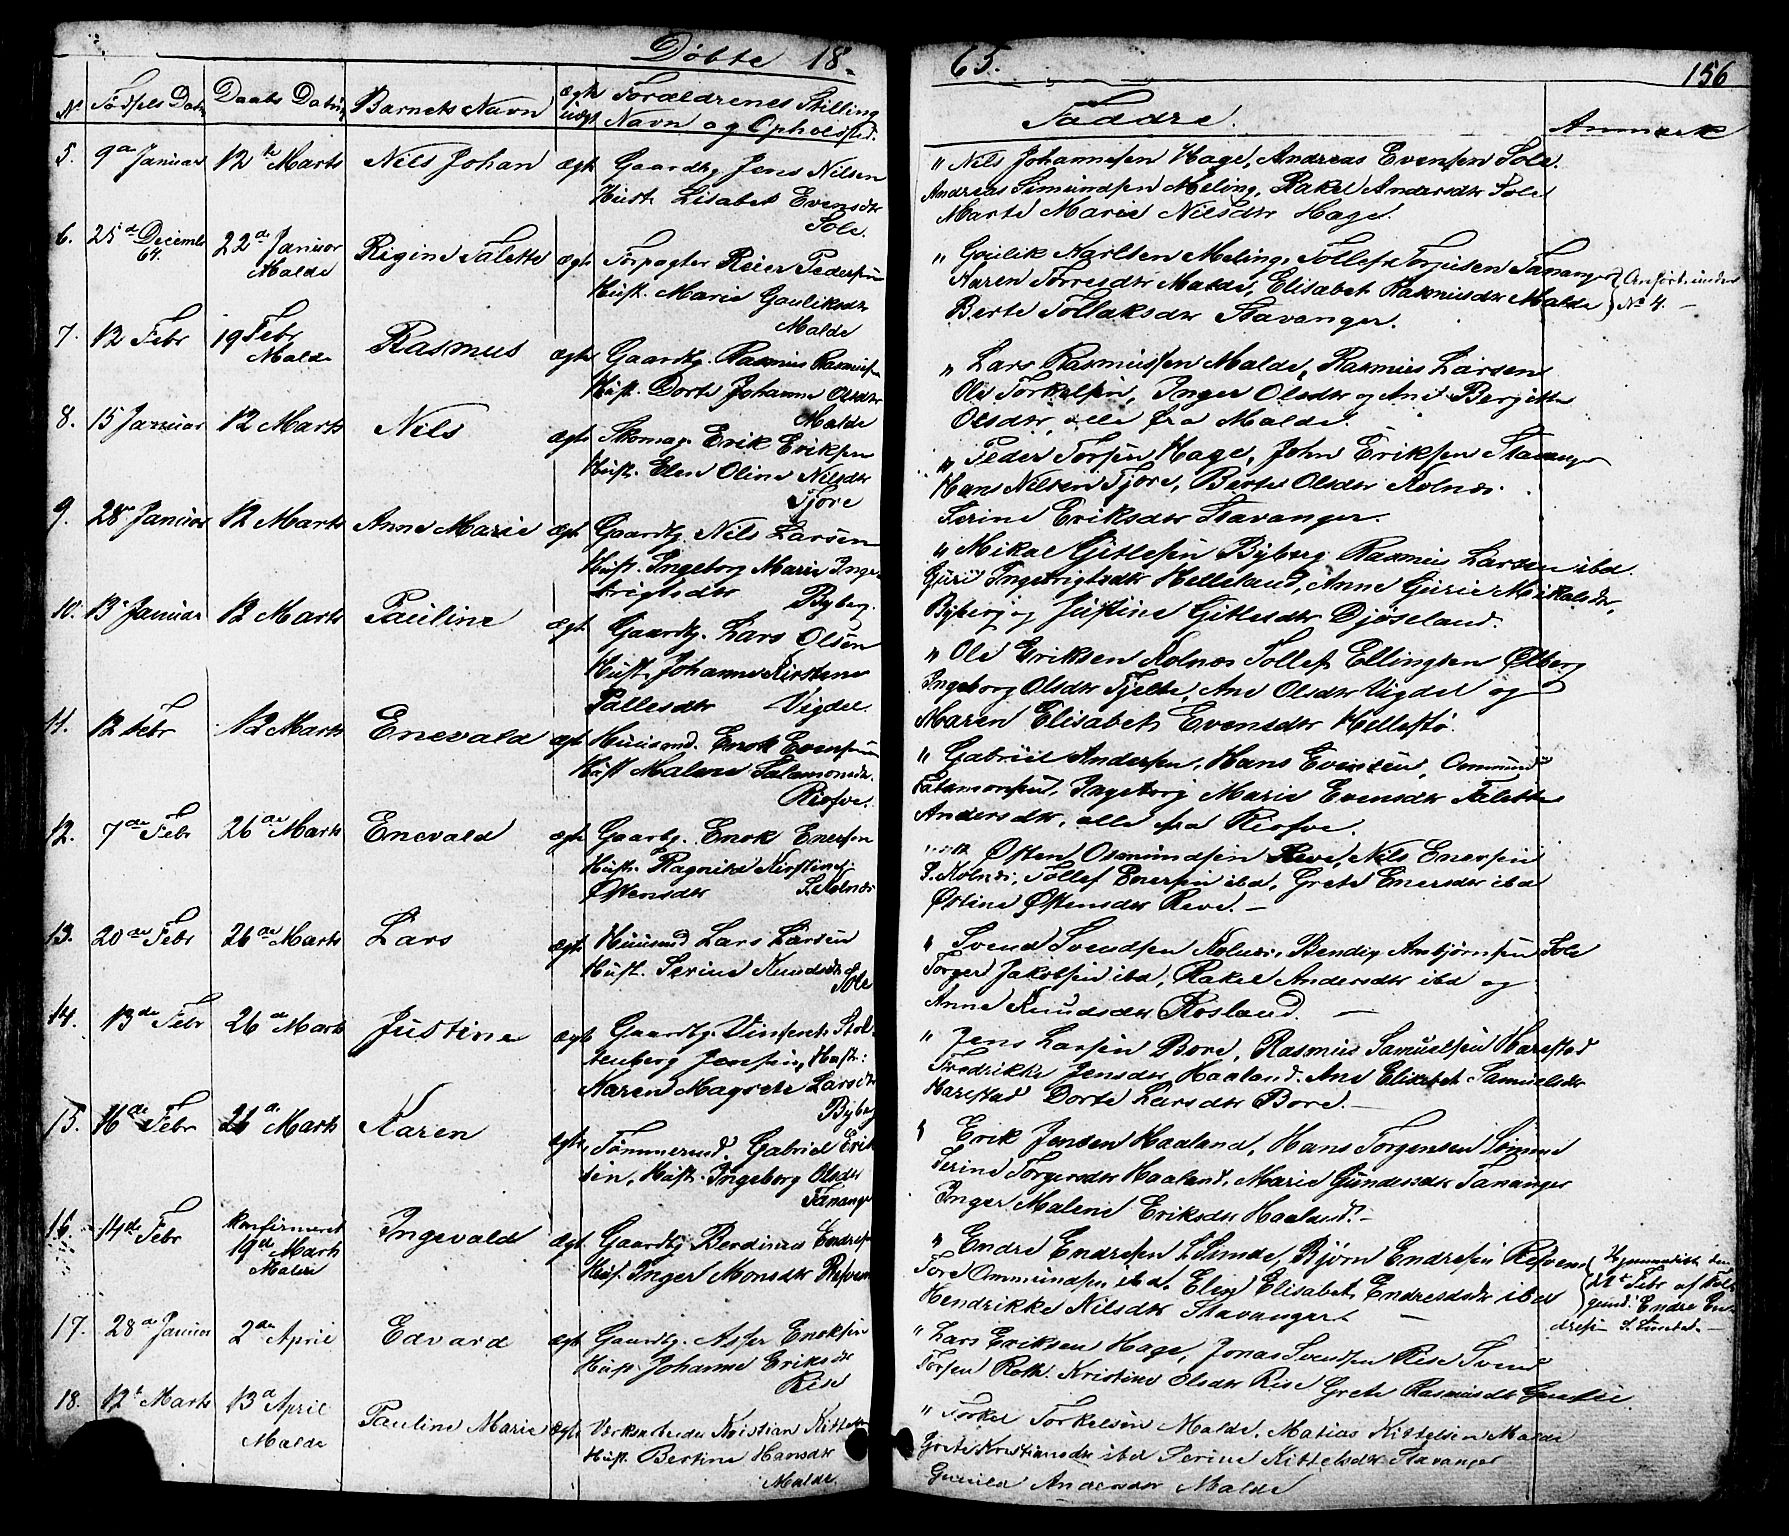 Døbte 18
65.
156
No Fødsels Datum Daabs Datum Barnets Navn ægte uægt Forældrenes Stilling
Navn og Opholdsted.
Faddre.
Anmærk
5. 9de Januar 12te Marts Nils Johan ægt Gaardbg Jens Nilsen
Hust. Lisabet Evensdtr
Sole.
" Nils Johannesen Hage, Andreas Evensen Sole.
Andreas Simundsen Meling, Rakel Andersdtr Sole
Marte Marie Nilsdtr Hage.
6. 25de Decembr 64. 22de Januar Malde Rigine Talette ægt Forpagter Reier Pedersen
Hust. Marie Gouliksdtr
Malde
" Goulik Karlsen Meling, Tollef Torjusen Tananger
Karen Torresdtr Malde, Elisabet Rasmusdtr Malde
Berte Tollaksdtr Stavanger.
Anført under
No 4. —
7. 12 Febr 19 Febr Malde Rasmus ægt Gaardbg. Rasmus Rasmussen
Hust. Dorte Johanne Olsdtr
Malde
" Lars Rasmussen Malde, Rasmus Larsen
Ole Torkelsen, Inger Olsdtr og Ane Bergitte
Olsdtr, alle fra Malde.
8. 15 Januar 12 Marts Nils ægt Skomag. Erik Eriksen
Hust. Elen Oline Nilsdtr
Tjore
" Peder Torsen Hage, John Eriksen Stavanger
Hans Nilsen Tjore, Berte Olsdtr Kolnes.
Serine Eriksdtr Stavanger.
9. 28 Januar 12 Marts Anne Marie ægt Gaardbg. Nils Larsen
Hust. Ingeborg Marie Inge-
brigtsdtr Byberg.
" Mikal Gitlesen Byberg Rasmus Larsen ibd.
Guri Ingebrigtsdtr Helleland, Anne Gurie Mikalsdtr,
Byberg og Justine Gitlesdtr Djøseland.
10. 13 Januar 12 Marts Pauline ægt Gaardbg. Lars Olsen
Hust. Johanne Kirstine
Pallesdtr Vigdel.
" Ole Eriksen Kolnes Tollef Ellingsen Ølberg
Ingeborg Olsdtr Tjelte, Ane Olsdtr Vigdel og
Maren Elisabet Evensdtr Hellestø.
11. 12 Febr 12 Marts Enevald ægt Huusmd. Enok Evensen
Hust Malene Salamonsdtr.
Risfve.
" Gabriel Andersen, Hans Evensen, Ommund
Salamonsen, Ingeborg Marie Evensdtr Talette
Andersdtr, alle fra Risfve.
12. 7de Febr 26de Marts Enevald ægt Gaardbg. Enok Enersen
Hust. Ragnilde Kirstine
Østensdtr S. Kolnes
" Østen Osmundsen Reve, Nils Enersen
S. Kolnes, Tollef Enersen ibd, Grete Enersdtr ibd
Østine Østensdtr Reve. —
13. 20de Febr 26de Marts Lars ægt Huusmd Lars Larsen
Hust. Serine Knudsdtr
Sole
" Svend Svendsen Kolnes, Bendig Asbjørnsen Sole
Torger Jakobsen ibd, Rakel Andersdtr ibd og
Anne Knudsdtr Rosland. —
14. 13de Febr 26de Marts Justine ægt Gaardbg. Vinsents Stol-
tenberg Jensen, Hust:
Karen Magrete Larsdtr
Byberg
" Jens Larsen Bore, Rasmus Samuelsen Harestad
Fredrikke Jensdtr Haaland. Ane Elisabet Samuelsdtr
Harestad Dorte Larsdtr Bore. —
15. 16de Febr 26de Marts Karen ægt Tømmermd. Gabriel Erik-
sen, Hust. Ingeborg Olsdtr
Tananger
" Erik Jensen Haaland, Hans Torgersen Sømme
Serine Torgersdtr Haaland, Marie Gundersdtr Tananger
Inger Malene Eriksdtr Haaland. —
16. 14de Febr Konfirmeret 19de Marts Malde Ingevald ægt Gaardbg Berdines Endresen
Hust. Inger Monsdtr Risfve
" Endre Endresen S. Sunde, Bjørn Endresen Risfve
Tore Ommundsen ibd. Elen Elisabet Endresdtr ibd
Hendrikke Nilsdtr Stavanger. —
Hjemmedøbt den
21de Febr af Fol-
gemd. Endre En-
dresen S. Sunde. —
17. 28de Januar 2den April Edvard ægt Gaardbg. Asser Enoksen
Hust. Johanne Eriksdtr
Rise
" Lars Eriksen Hage, Jonas Svendsen Rise Svend
Torsen Roth. Kristine Olsdtr Rise Grete Rasmusdtr
18. 12te Marts 13de April Malde Pauline Marie ægt Værksarbeider Kristian Kittelsen
Hust. Bertine Hansdtr
Malde.
" Torkel Torkelsen Malde, Matias Kittelsen Malde
Grete Kristiansdtr ibd Serine Kittelsdtr Stavanger
Gunild Andersdtr Malde